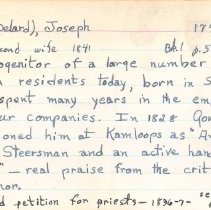 Delard), Joseph 17
cond wife 1841 Bk.1 p.5
ogenitor of a large number
n residents today, born in S
spent many years in the em
ur companies. In 1828 Gov
oned him at Kamloops as "A
Steersman and an active han
" — real praise from the crit
nor.
d petition for priests — 1836-7-